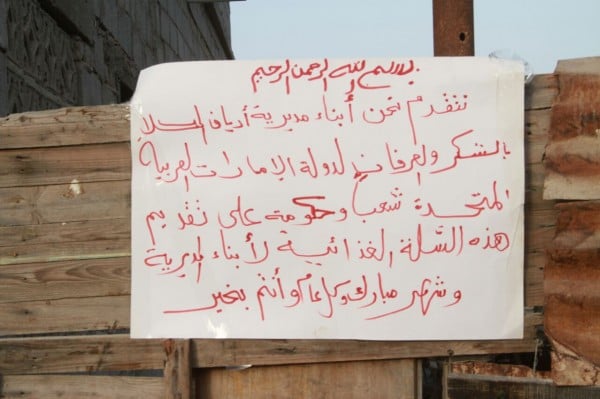 بسم الله الرحمن الرحيم
نتقدم نحن أبناء مديرية أرياف السلا
بالشكر والعرفان لدولة الإمارات العربية
المتحدة شعبا وحكومة على تقديم
هذه السلة الغذائية لأبناء المديرية
وشهر مبارك وكل عام وأنتم بخير